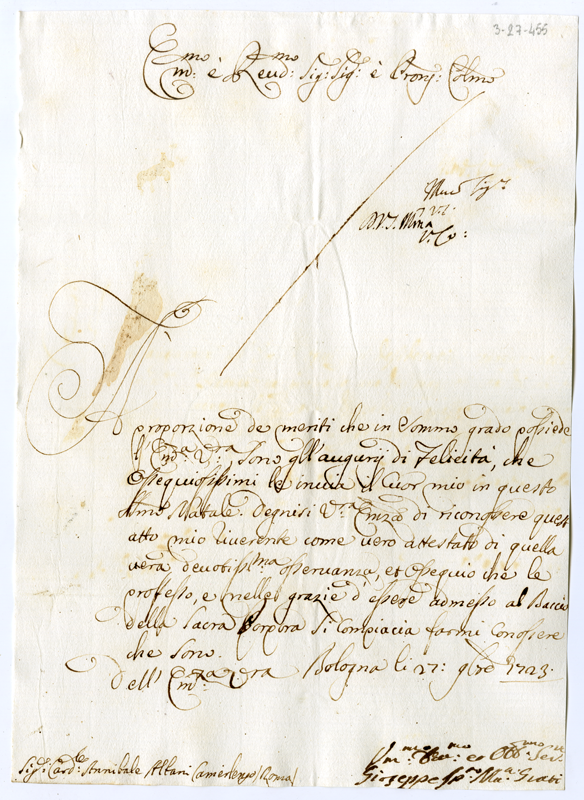 3-27-455
Emo: è Revdmo: Sig: Sig: è Pron: Colmo
A
proporzione de meriti che in sommo grado possiede
l' Emza Vra sono gll'augurij di Felicità, che
Ossequiosissimi le invia il Cuor mio in questo
Almo Natale. Degnisi Vra Emza di riconoscere quest
atto mio riverente come vero attestato di quella
vera devotissma osservanza, et ossequio che le
professo, e nelle grazie d'essere admesso al Baccio
della Sacra Porpora si compiacia farmi conoscere
che sono
Dell' Emza Vra Bologna li 27: 9bre 1723.
Umo: Devmo: et Obbmo Ser.
Giuseppe Ma
Sigr Cardle Annibale Albani Camerlengo / Roma /